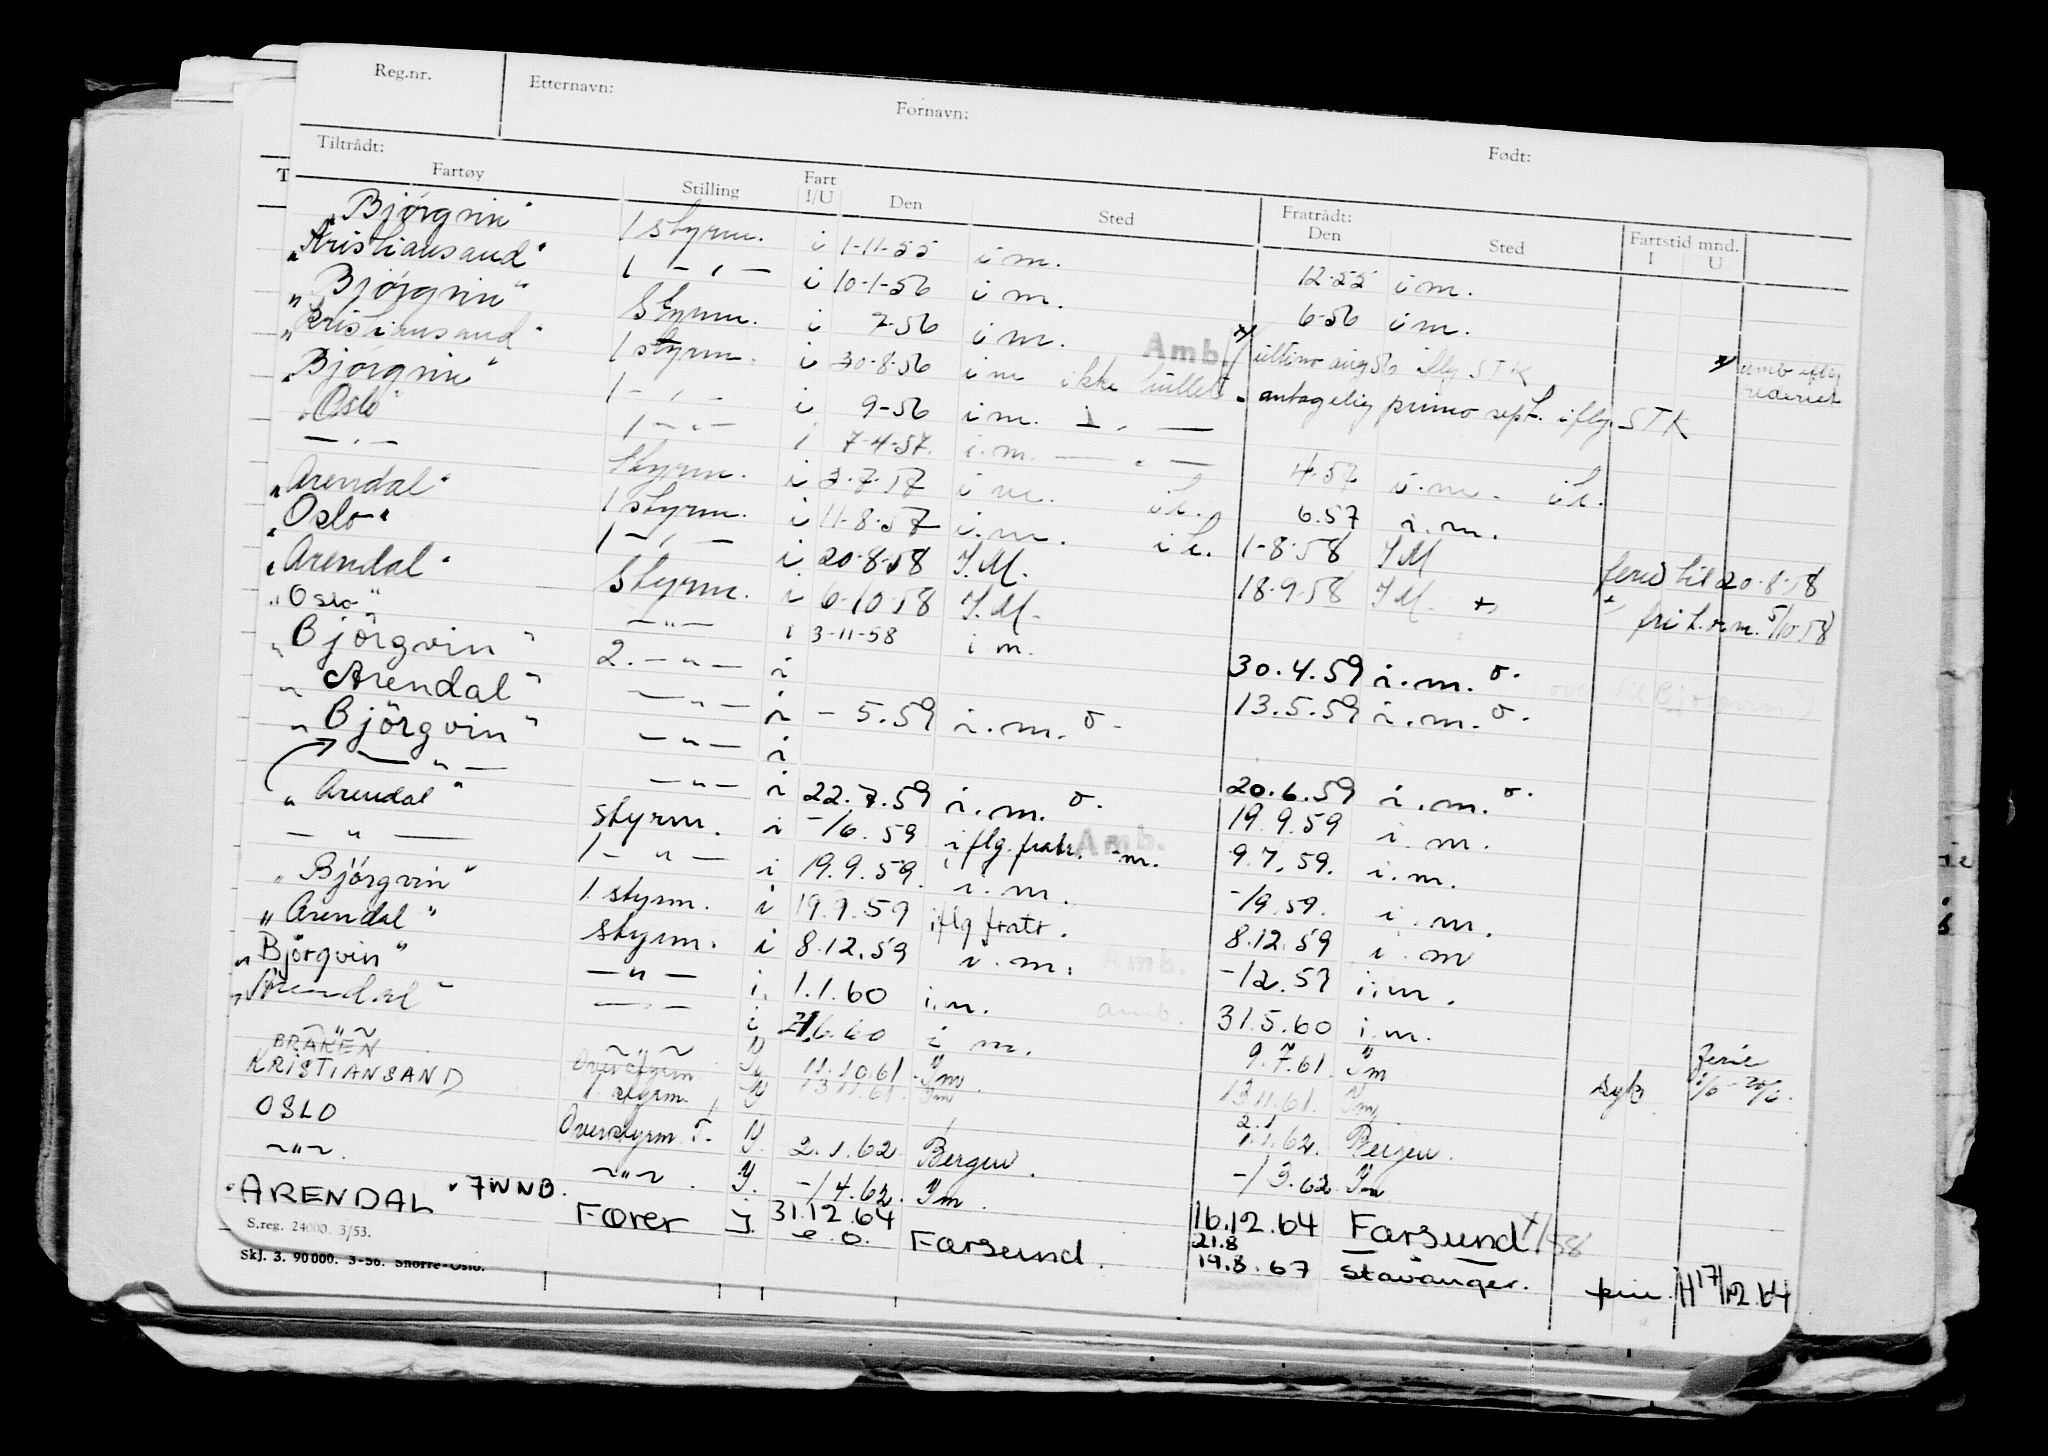 Reg.nr. Etternavn: Fornavn: Født:
Tiltrådt: Fratrådt: Fartstid mnd.
Fartøy Stilling Fart I/U Den Sted Den Sted I U
"Björgvin" 1 styrm. i 1-11-55 i m. 12-55 i m.
"Kristiansand" 1 — " — i 10-1-56 i m. 6-56 i m.
"Björgvin" Styrm. i 7-56 i m. Amb. x/ ultimo aug 56 iflg STK x/ amb iflg rederiet
"Kristiansand" 1 styrm. i 30-8-56 i m ikke antagelig primo sept. iflg. STK
"Björgvin" 1 — " — i 9-56 i m. — " —
"Oslo" 1 — " — i 7-4-57. i.m. — " — 4.57 i.m.
— " — Styrm. i 3-7-57 i m. 6.57 i.m.
"Arendal" 1 styrm. i 11-8-57 i.m. 1-8-58 I M ferie til 20-8-58
"Oslo" 1 — " — i 20-8-58 I.M. 18-9-58 I M. fri 5/10 58
"Arendal" Styrm. i 6-10-58 I.M.
"Oslo" — " — i 3-11-58 i m. 30.4.59 i.m. o.
"Björgvin" 2. — " — i 13.5.59 i.m. o.
"Arendal" — " — i – 5.59 i.m. o.
"Björgvin" — " — i 20.6.59 i.m. o.
— " — — " — i 22.7.59 i.m. o. 19.9.59 i.m.
"Arendal" styrm. i –/6.59 iflg. fratr. Amb. m. 9.7.59. i.m.
— " — 1 — " — i 19.9.59. i.m. –/9.59. i.m.
"Björgvin" 1 styrm. i 19.9.59 iflg fratr. 8.12.59 i.m
"Arendal" styrm. i 8.12.59 i.m. Amb. –12.59 i.m.
"Björgvin" — " — i. 1.1.60 i.m. amb. 31.5.60 i.m.
"Arendal" — " — i 6.60 i m. 9.7.61. Im Ferie
BRÅKEN Overstyrm Y 11.10.61 Im 13.11.61. Im syk
KRISTIANSAND 1 styrm. Y 13.11.61. Im 2.1 1.1.62. Bergen.
OSLO Overstyrm. Y. 2.1.62 Bergen. –/3.62 Im
~"~. ~"~. Y. –/4.62. Im. 16.12.64 Farsund
"ARENDAL" 7WNB. Fører j. 31.12.64 e.o. Farsund. 21.8 19.8.67 Stavanger. H 17/12.64
S.reg. 24000. 3/53.
Skj. 3. 90000. 3-56. Snorre-Oslo.